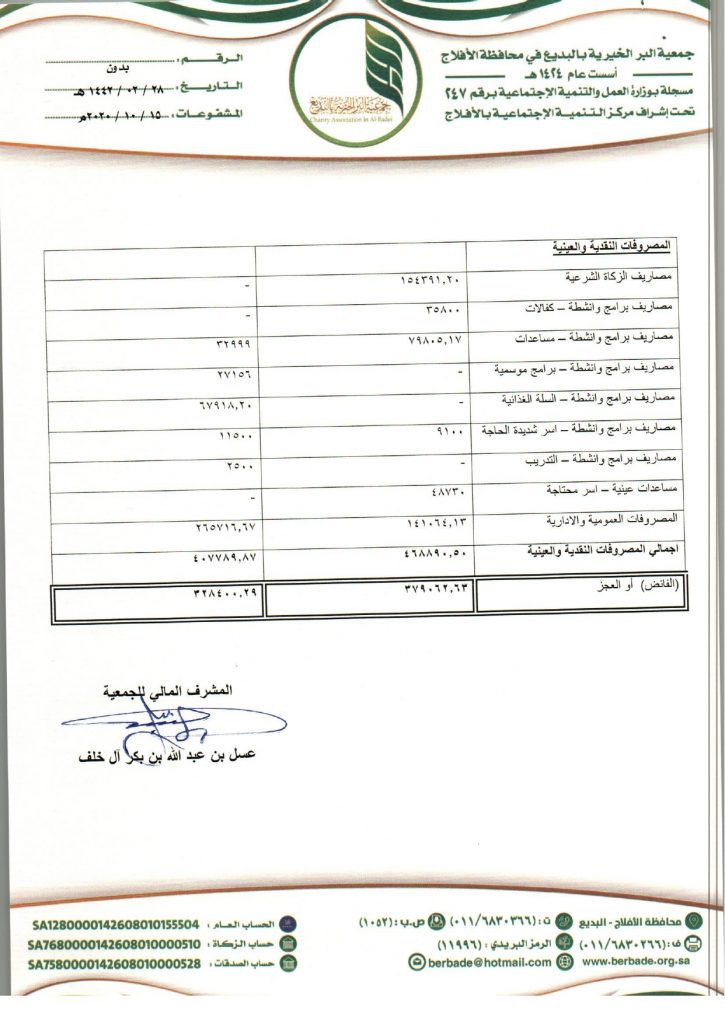 جمعية البر الخيرية بالبديع في محافظة الأفلاج
أسست عام ١٤٢٤ هـ
مسجلة بوزارة العمل والتنمية الإجتماعية برقم ٢٤٧
تحت إشراف مركز التنمية الإجتماعية بالأفلاج
جمعية البر الخيرية بالبديع
Charity Association in Al-Badei
الرقم: بدون
التاريخ: ٢٨ / ٠٢ / ١٤٤٢ هـ
المشفوعات: ١٥ / ١٠ / ٢٠٢٠م
المصروفات النقدية والعينية
مصاريف الزكاة الشرعية ١٥٤٣٩١,٢٠ -
مصاريف برامج وانشطة – كفالات ٣٥٨٠٠ -
مصاريف برامج وانشطة – مساعدات ٧٩٨٠٥,١٧ ٣٢٩٩٩
مصاريف برامج وانشطة – برامج موسمية - ٢٧١٥٦
مصاريف برامج وانشطة – السلة الغذائية - ٦٧٩١٨,٢٠
مصاريف برامج وانشطة – اسر شديدة الحاجة ٩١٠٠ ١١٥٠٠
مصاريف برامج وانشطة – التدريب - ٢٥٠٠
مساعدات عينية – اسر محتاجة ٤٨٧٣٠ -
المصروفات العمومية والادارية ١٤١٠٦٤,١٣ ٢٦٥٧١٦,٦٧
اجمالي المصروفات النقدية والعينية ٤٦٨٨٩٠,٥٠ ٤٠٧٧٨٩,٨٧
(الفائض) أو العجز ٣٧٩٠٦٢,٦٣ ٣٢٨٤٠٠,٢٩
المشرف المالي للجمعية
عسل بن عبد الله بن بكر آل خلف
محافظة الأفلاج - البديع ت: (٠١١/٦٨٣٠٣٦٦) ص.ب: (١٠٥٢)
ف: (٠١١/٦٨٣٠٢٦٦) الرمز البريدي: (١١٩٩٦)
www.berbade.org.sa berbade@hotmail.com
الحساب العام: SA1280000142608010155504
حساب الزكاة: SA7680000142608010000510
حساب الصدقات: SA7580000142608010000528